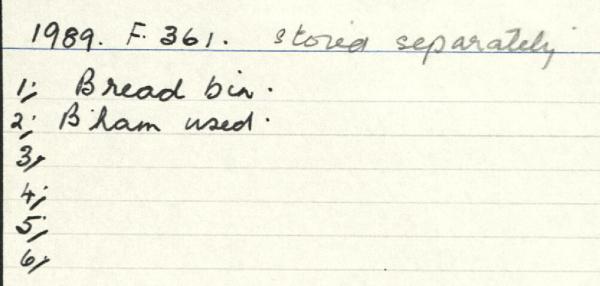 1989. F. 361. stored separately
1; Bread bin.
2; B'ham used.
3;
4;
5;
6;